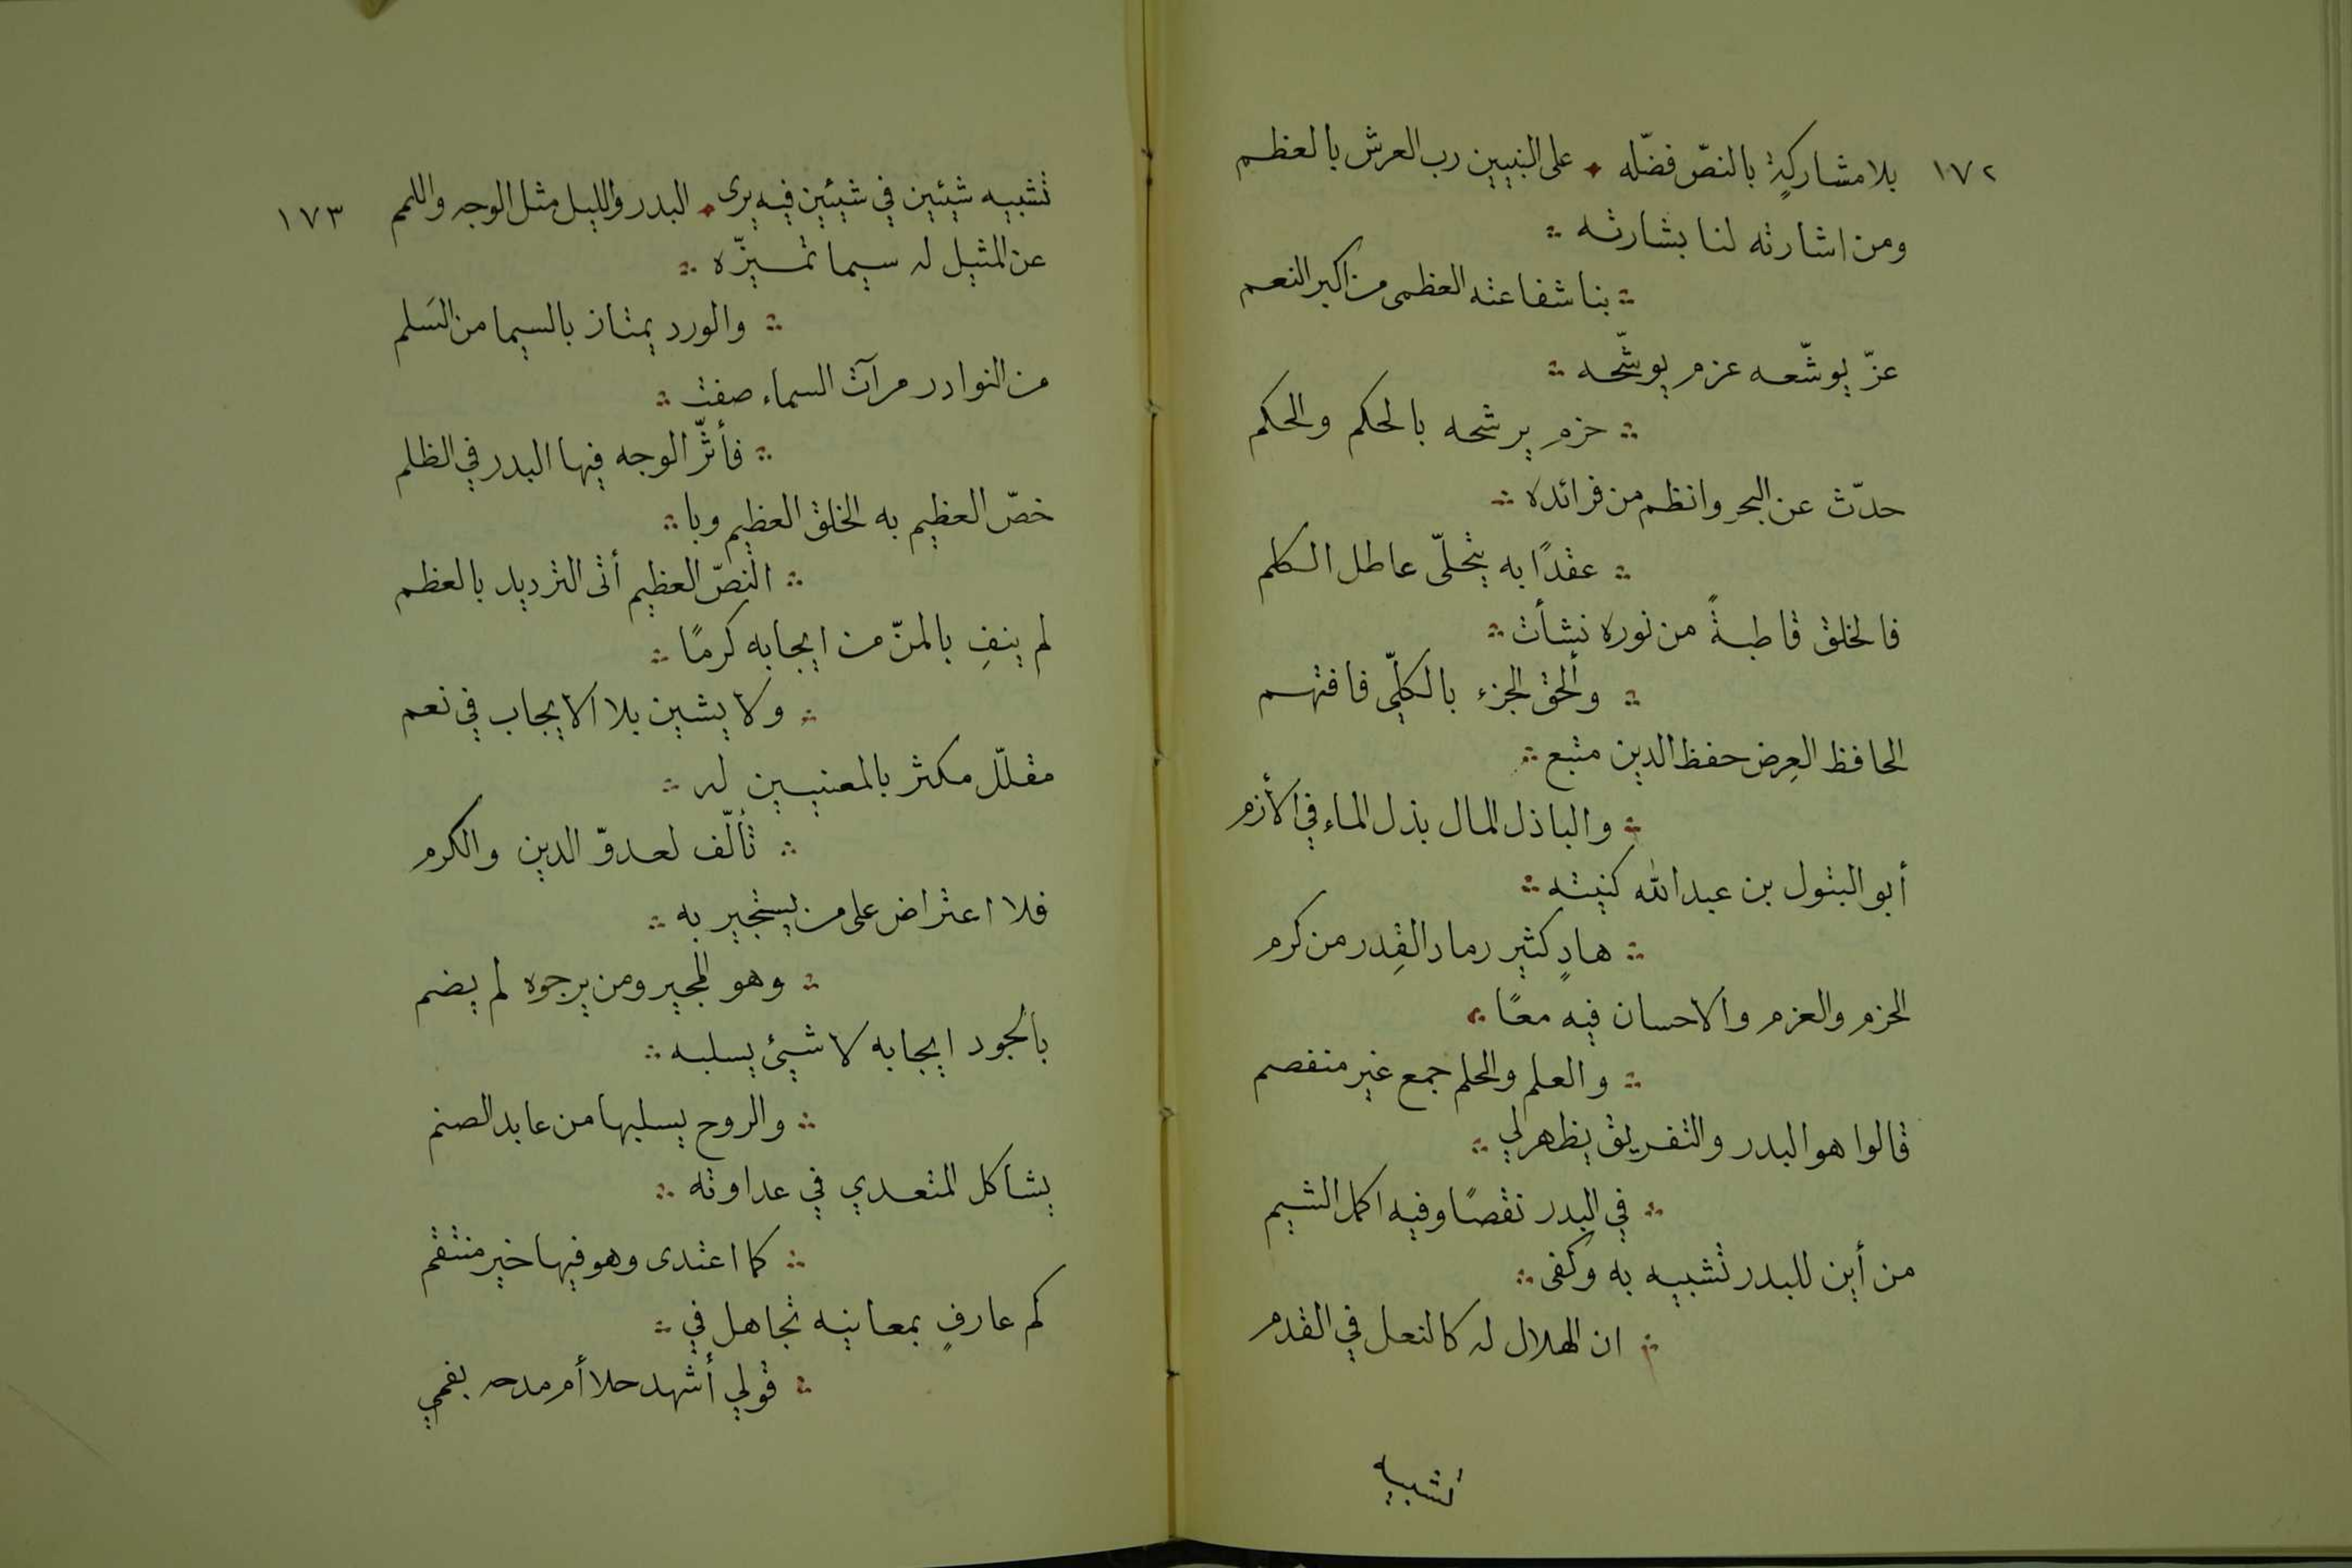 ١٧٢
بلا مشاركةٍ بالنصّ فضّله * على النبيين رب العرش بالعظم
ومن اشارته لنا بشارته ∴
∴ بنا شفاعته العظمى من اكبر النعم
عزّ يوشّعه عزم يوشّحه ∴
∴ حزم يرشحه بالحكم والحكم
حدّث عن البحر وانظم من فرائده ∴
∴ عقدًا به يتحلّى عاطل الكلم
فالخلق قاطبةً من نوره نشأت ∴
∴ وألحق الجزء بالكلّي فافتهم
الحافظ العِرض حفظ الدين متبع ∴
∴ والباذل المال بذل الماء في الأزم
أبو البتول بن عبد الله كنيته ∴
∴ هادٍ كثير رماد القِدر من كرم
الحزم والعزم والاحسان فيه معًا ∴
∴ والعلم والحلم جمع غير منفصم
قالوا هو البدر والتفريق يظهر لي ∴
∴ في البدر نقصًا وفيه اكمل الشيم
من أين للبدر تشبيه به وكفى ∴
∴ ان الهلال له كالنعل في القدم
تشبيه
١٧٣
تشبيه شيئين في شيئين فيه يرى * البدر والليل مثل الوجه واللمم
عن المثيل له سيما تميزّه ∴
∴ والورد يمتاز بالسيما من السَلم
من النوادر مرآت السماء صفت ∴
∴ فأثّر الوجه فيها البدر في الظلم
خصّ العظيم به الخلق العظيم وبا ∴
∴ النصّ العظيم أتى الترديد بالعظم
لم ينفِ بالمنّ من ايجابه كرمًا ∴
∴ ولا يشين بلا الايجاب في نعم
مقلّل مكثر بالمعنيين له ∴
∴ تألّف لعدوّ الدين والكرم
فلا اعتراض على من يستجير به ∴
∴ وهو المجير ومن يرجوه لم يضم
بالجود ايجابه لا شيئ يسلبه ∴
∴ والروح يسلبها من عابد الصنم
يشاكل المتعدي في عداوته ∴
∴ كما اعتدى وهو فيها خير منتقم
كم عارفٍ بمعانيه تجاهل في ∴
∴ قولي أشهد حلا أم مدحه بفمي